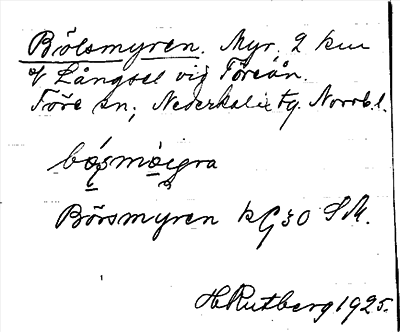 Bölsmyren. Myr, 2 km
v Långsel vid Töreån.
Töre sn, Nederkalix tg. Norrb. l.
bo̜smo̜i̯gra
Börsmyren kG30 SM.
H Rutberg 1925.